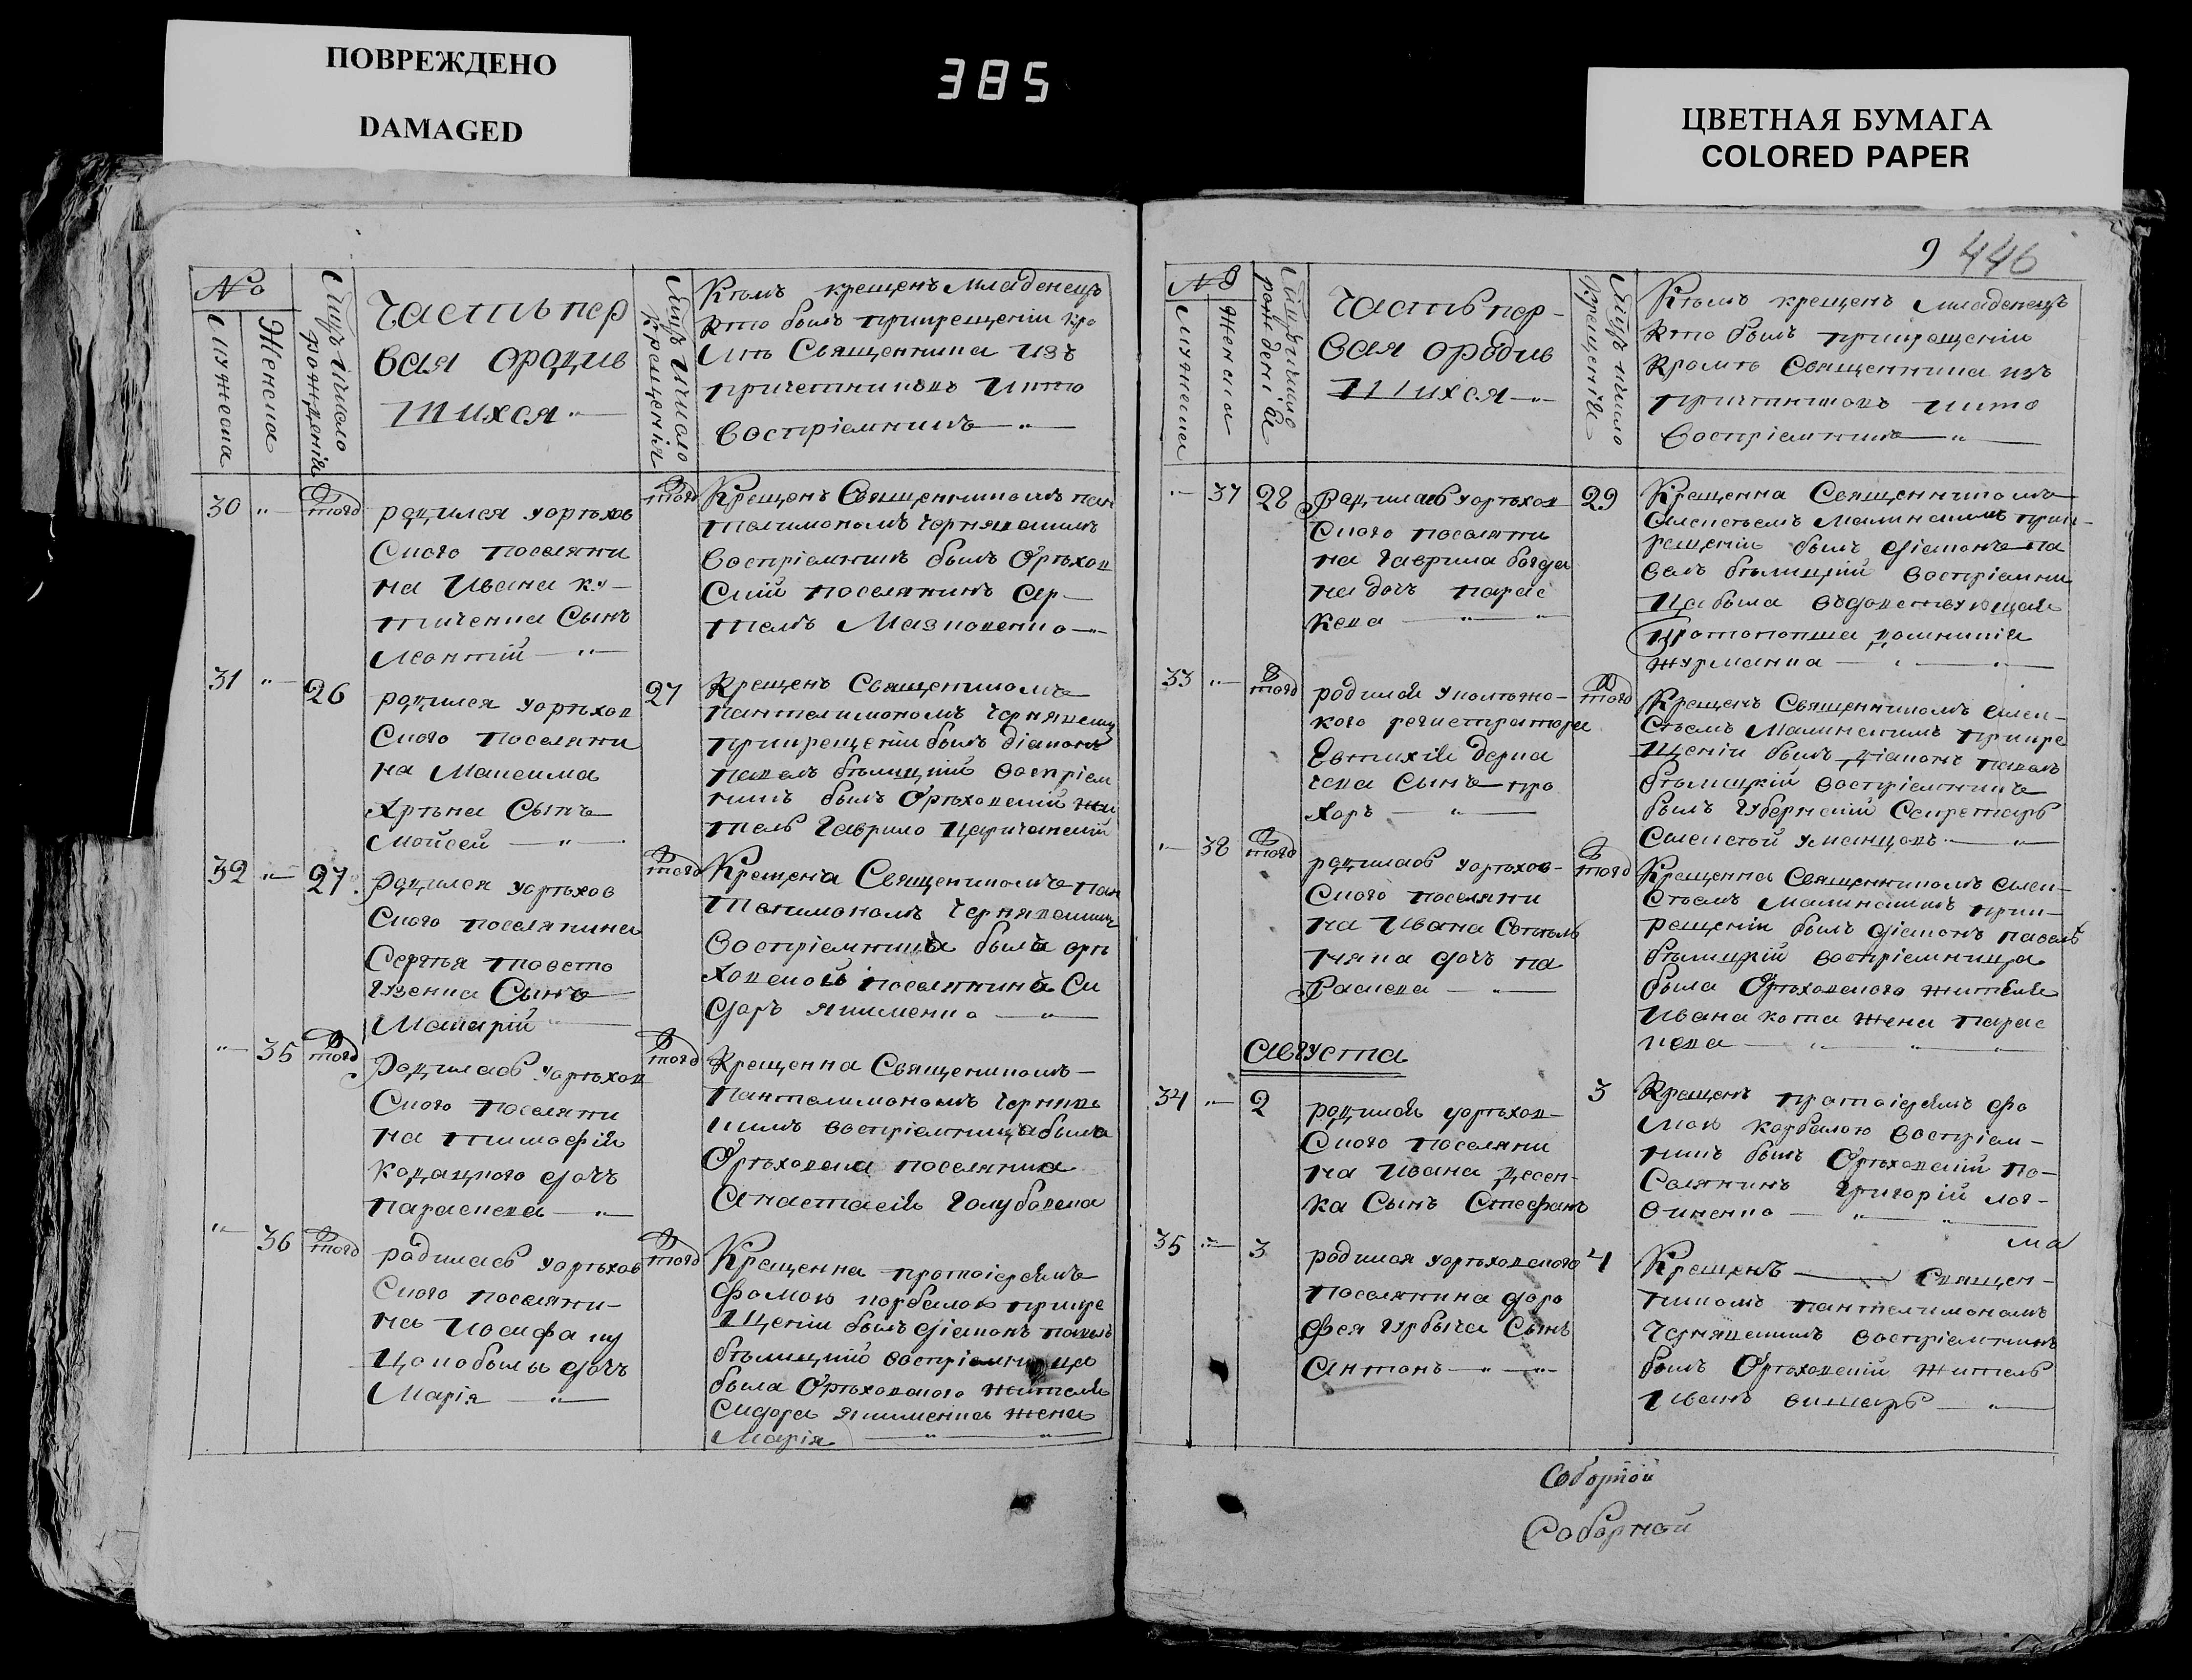 ПОВРЕЖДЕНО
DAMAGED
385
ЦВЕТНАЯ БУМАГА
COLORED PAPER
9 446
№
мужеска
Женска
Мцъ Ичисло рожденія
Часть пер
вая ородив
шихся
Мцъ Ичисло Крещенія
Кѣмъ крещенъ Младенецъ
кто былъ прикрещеніи кро
мѣ Священника Изъ
причетниковъ Икто
Воспріемникъ
30 " того
родился уорѣхов
Ского поселяни
на Ивана Ку
тиченка Сынъ
Леонтій
того
Крещенъ Священникомъ пан
телимономъ Чернявскимъ
Воспріемник былъ Орѣхов
Скій поселянинъ Ар
темъ Мазновенко
31 " 26
родился уорѣхов
Ского поселяни
на Максима
Хрѣна Сынъ
Мойсей
27
Крещенъ Священикомъ
Пантелимономъ Чернявским
прикрещеніи былъ діаконъ
павелъ бѣлицкій воспріем
никъ былъ Орѣховскій жи
тель Гаврило Царичанскій
32 " 27
родился уорѣхов
Ского поселянина
Сергѣя товсто
гузенка Сынъ
Макарій
того
Крещена Священикомъ пан
телимономъ Чернявским
Воспріемница была орѣ
ховской поселянина Си
доръ якименко
" 35 того
Родилась уорѣхов
Ского поселяни
на тимофія
кодацкого дочь
параскева
того
Крещенна Священикомъ
Пантелимономъ Черняв
кимъ воспріемница была
Орѣховска поселянка
Анастасія Голубовска
" 36 того
родилась уорѣхов
Ского поселяни
на Иосифа ку
цопобылы дочь
Марія
того
Крещенна протоіереемъ
Фомою корбелою прикре
щеніи былъ діаконъ павелъ
бѣлицкій воспріемница
была Орѣховского жителя
Сидора якименка жена
Марія
№
мужеска
Женска
Мцъ Ичисло рожденія
Часть пер
вая ородив
шихся
Мцъ ичисло Крещенія
Кѣмъ крещенъ младенецъ
кто былъ прикрещеніи
Кромѣ Священника изъ
причтниковъ икто
Воспріемникъ
" 37 28
Родилась уорѣхов
Ского поселяни
на Гаврила богда
на дочь парас
кева
29
Крещенна Священникомъ
Алексѣемъ Малинскимъ прик
рещеніи былъ діаконъ па
велъ бѣлицкій воспріемни
ца была
Протопопша домникія
журманка
33 " того
родился уколѣжс
кого регистратора
Евтихія дерка
чева Сынъ про
хоръ
того
Крещенъ Священникомъ Алек
сѣемъ Малинскимъ прикре
щеніи былъ діаконъ павелъ
бѣлицкій воспріемникъ
былъ Губернскій Секретарь
Алексѣй уманцовъ
" 38 того
родилась уорѣхов
Ского поселяни
на Ивана
дочь па
Раскева
того
Крещенна Священникомъ Алек
сѣемъ Малинскимъ прик
рещеніи былъ діаконъ павелъ
бѣлицкій воспріемница
была Орѣховского жителя
Ивана кота жена Парас
кева
Августа
34 " 2
родился уорѣхов
Ского поселяни
на Ивана десен
ка Сынъ Стефанъ
3
Крещенъ протоіереемъ Фо
мою корбелою воспріем
никъ былъ Орѣховскій по
селянинъ Григорій лог
виненко
35 " 3
родился уорѣховского
Поселянина доро
фея Гурбыча Сынъ
Антонъ
4
Крещенъ Священ
никомъ пантелимономъ
Чернявскимъ воспріемникъ
былъ Орѣховскій житель
Иванъ
Соборной
Соборной